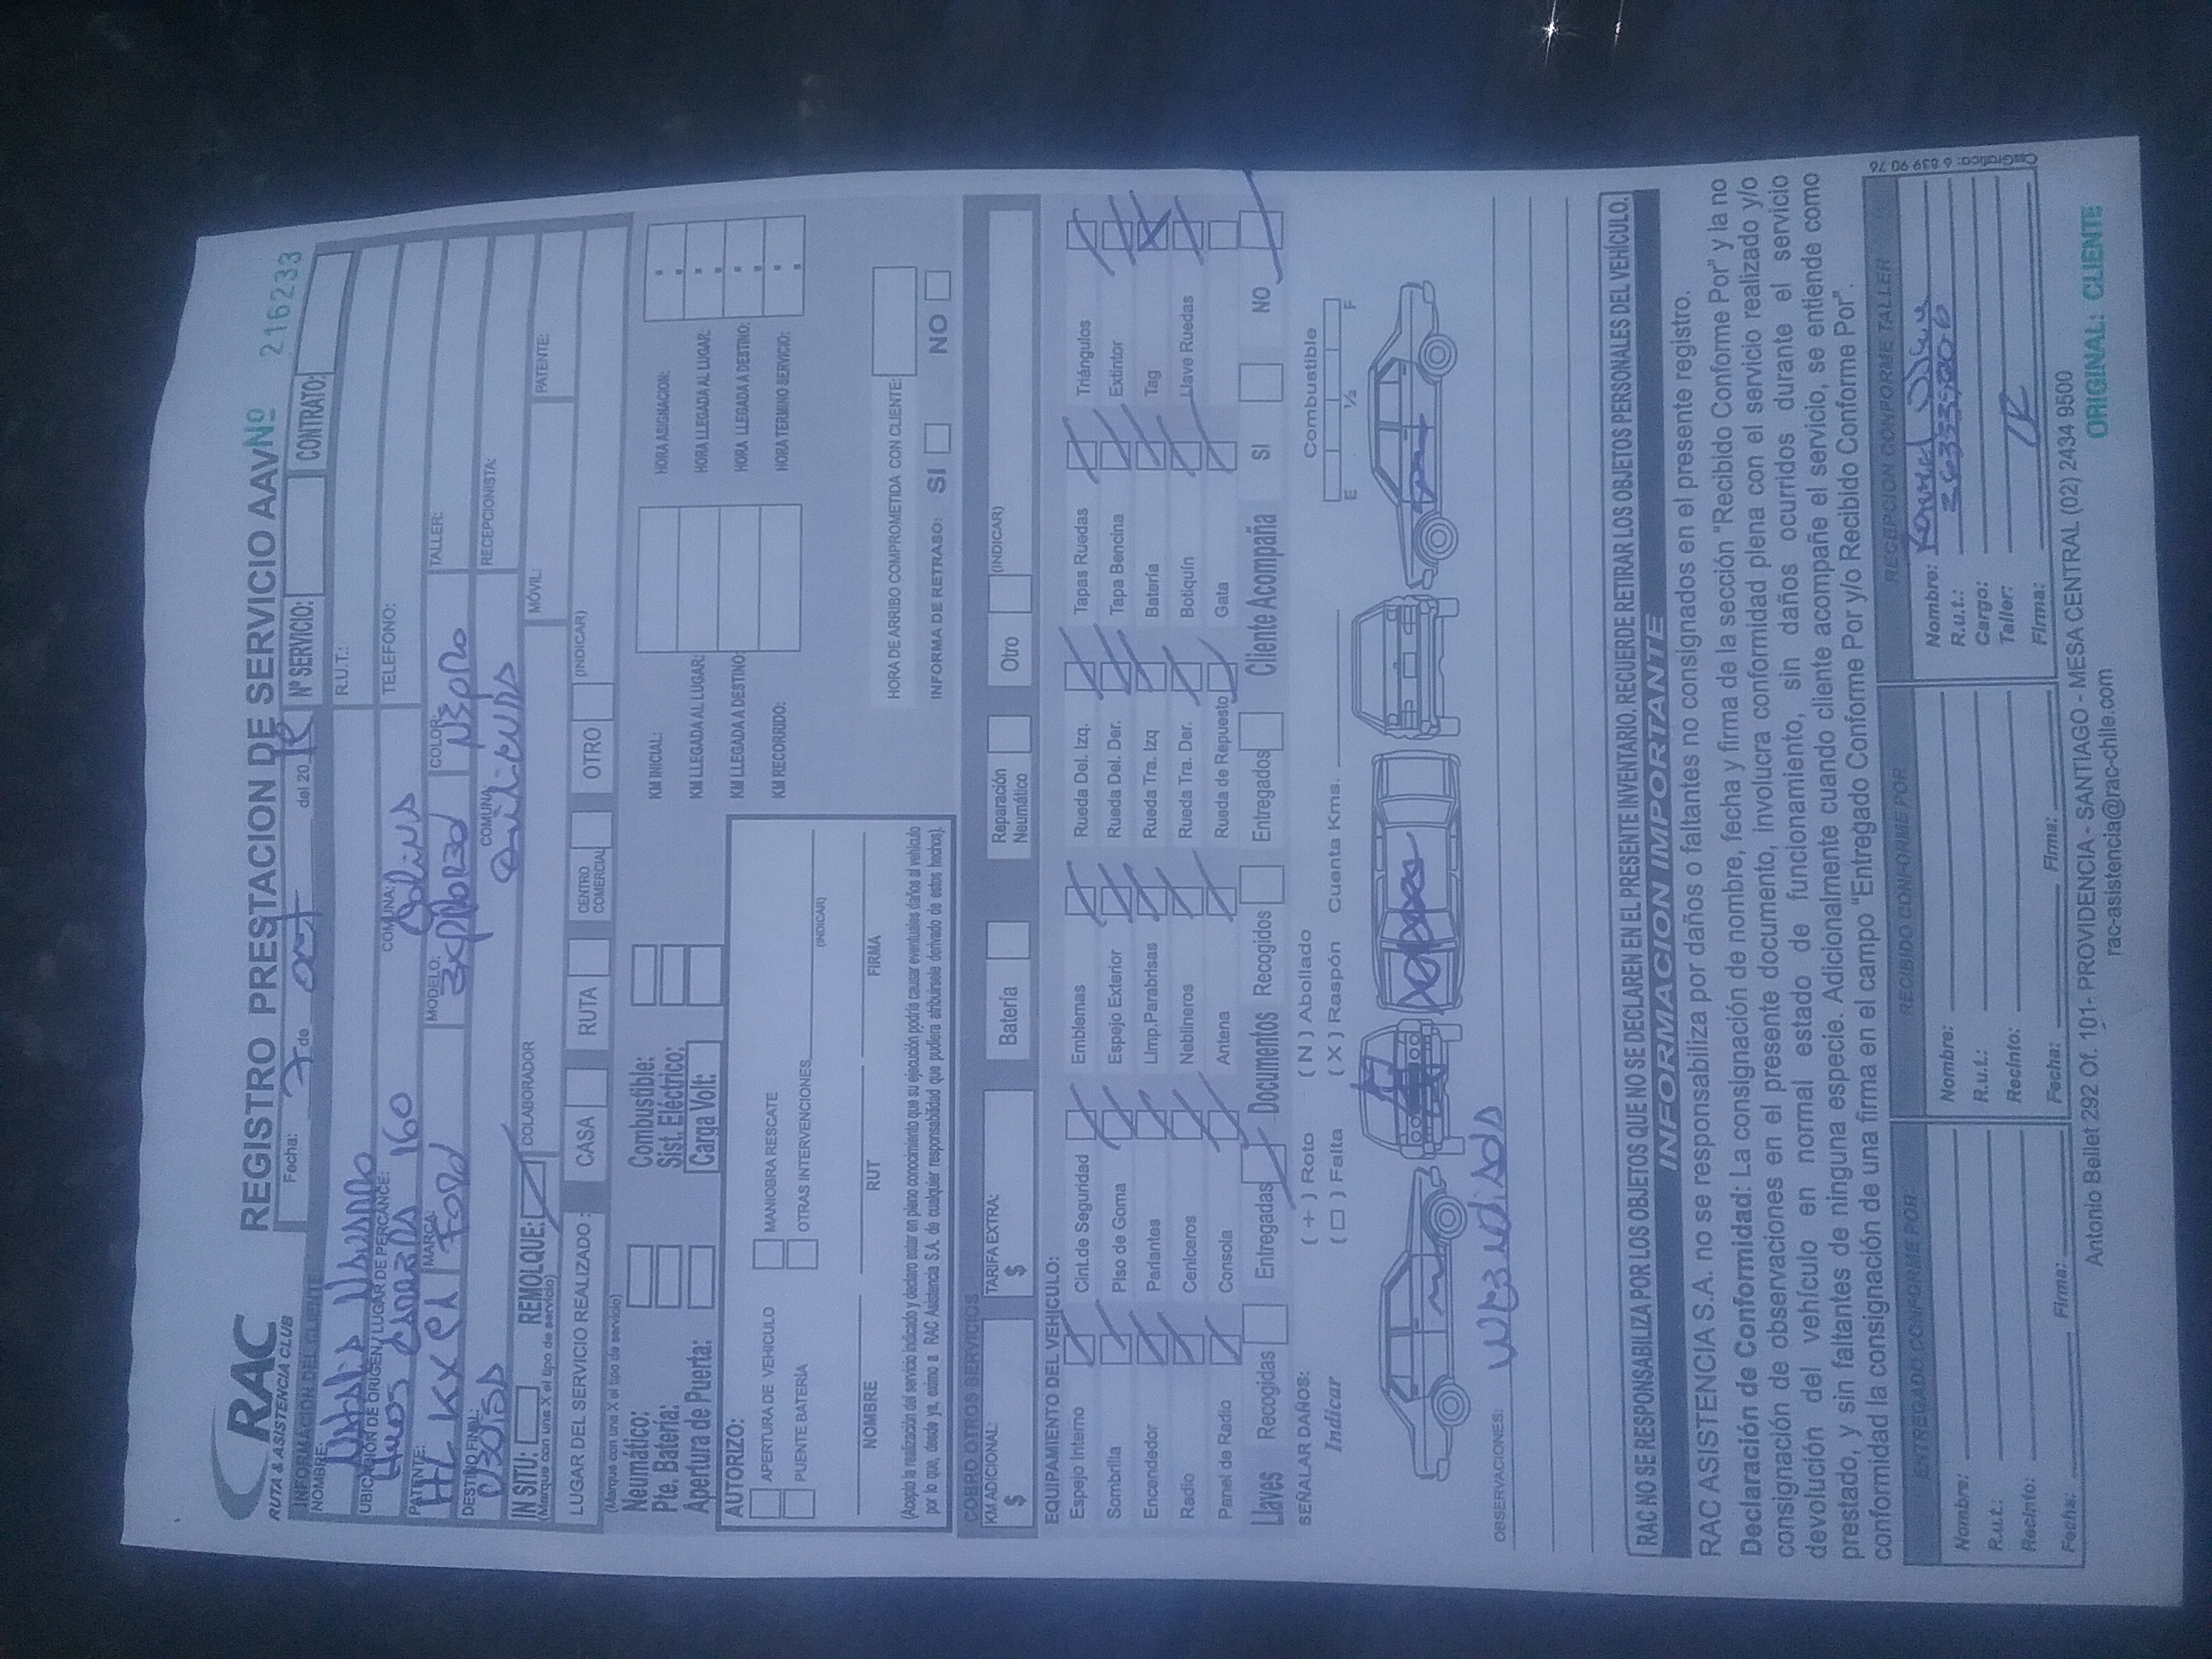 RAC
RUTA & ASISTENCIA CLUB
REGISTRO PRESTACION DE SERVICIO AAV Nº 216233
Fecha: 7 de oct del 20
Nº SERVICIO: CONTRATO:
INFORMACION DEL CLIENTE
NOMBRE: R.U.T.:
UBICACIÓN DE ORIGEN / LUGAR DE PERCANCE: 160 COMUNA: Colina TELEFONO:
PATENTE: HL KX MARCA: Ford MODELO: COLOR: TALLER:
DESTINO FINAL: COMUNA: Quilicura RECEPCIONISTA:
IN SITU: REMOLQUE: COLABORADOR MÓVIL: PATENTE:
(Marque con una X el tipo de servicio)
LUGAR DEL SERVICIO REALIZADO: CASA RUTA CENTRO COMERCIAL OTRO (INDICAR)
(Marque con una X el tipo de servicio)
Neumático: Combustible: KM INICIAL: HORA ASIGNACION:
Pte. Batería: Sist. Eléctrico: KM LLEGADA AL LUGAR: HORA LLEGADA AL LUGAR:
Apertura de Puerta: Carga Volt: KM LLEGADA A DESTINO: HORA LLEGADA A DESTINO:
KM RECORRIDO: HORA TERMINO SERVICIO:
AUTORIZO:
APERTURA DE VEHICULO MANIOBRA RESCATE
PUENTE BATERÍA OTRAS INTERVENCIONES (INDICAR)
NOMBRE RUT FIRMA
HORA DE ARRIBO COMPROMETIDA CON CLIENTE:
INFORMA DE RETRASO: SI NO
(Acepto la realización del servicio indicado y declaro estar en pleno conocimiento que su ejecución podría causar eventuales daños al vehículo
por lo que, desde ya, eximo a RAC Asistencia S.A. de cualquier responsabilidad que pudiera atribuírsele derivado de estos hechos).
COBRO OTROS SERVICIOS
KM ADICIONAL: $ TARIFA EXTRA: $ Batería Reparación Neumático Otro (INDICAR)
EQUIPAMIENTO DEL VEHICULO:
Espejo Interno Cint.de Seguridad Emblemas Rueda Del. Izq. Tapas Ruedas Triángulos
Sombrilla Piso de Goma Espejo Exterior Rueda Del. Der. Tapa Bencina Extintor
Encendedor Parlantes Limp.Parabrisas Rueda Tra. Izq Batería Tag
Radio Ceniceros Neblineros Rueda Tra. Der. Botiquín Llave Ruedas
Panel de Radio Consola Antena Rueda de Repuesto Gata
Llaves Recogidas Entregadas Documentos Recogidos Entregados Cliente Acompaña SI NO
SEÑALAR DAÑOS: ( + ) Roto ( N ) Abollado Combustible
Indicar ( □ ) Falta ( X ) Raspón Cuenta Kms. E ½ F
OBSERVACIONES:
RAC NO SE RESPONSABILIZA POR LOS OBJETOS QUE NO SE DECLAREN EN EL PRESENTE INVENTARIO. RECUERDE RETIRAR LOS OBJETOS PERSONALES DEL VEHÍCULO.
INFORMACION IMPORTANTE
RAC ASISTENCIA S.A. no se responsabiliza por daños o faltantes no consignados en el presente registro.
Declaración de Conformidad: La consignación de nombre, fecha y firma de la sección "Recibido Conforme Por" y la no
consignación de observaciones en el presente documento, involucra conformidad plena con el servicio realizado y/o
devolución del vehículo en normal estado de funcionamiento, sin daños ocurridos durante el servicio
prestado, y sin faltantes de ninguna especie. Adicionalmente cuando cliente acompañe el servicio, se entiende como
conformidad la consignación de una firma en el campo "Entregado Conforme Por y/o Recibido Conforme Por".
ENTREGADO CONFORME POR RECIBIDO CONFORME POR RECEPCION CONFORME TALLER
Nombre: Nombre: Nombre:
R.u.t.: R.u.t.: R.u.t.:
Recinto: Recinto: Cargo:
Taller:
Fecha: Firma: Fecha: Firma: Firma:
Antonio Bellet 292 Of. 101- PROVIDENCIA - SANTIAGO - MESA CENTRAL (02) 2434 9500
rac-asistencia@rac-chile.com
ORIGINAL: CLIENTE